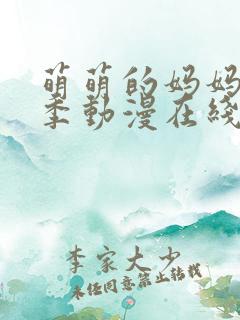 萌萌的妈妈
季動漫在綫
李家大少
未经同意禁止转载